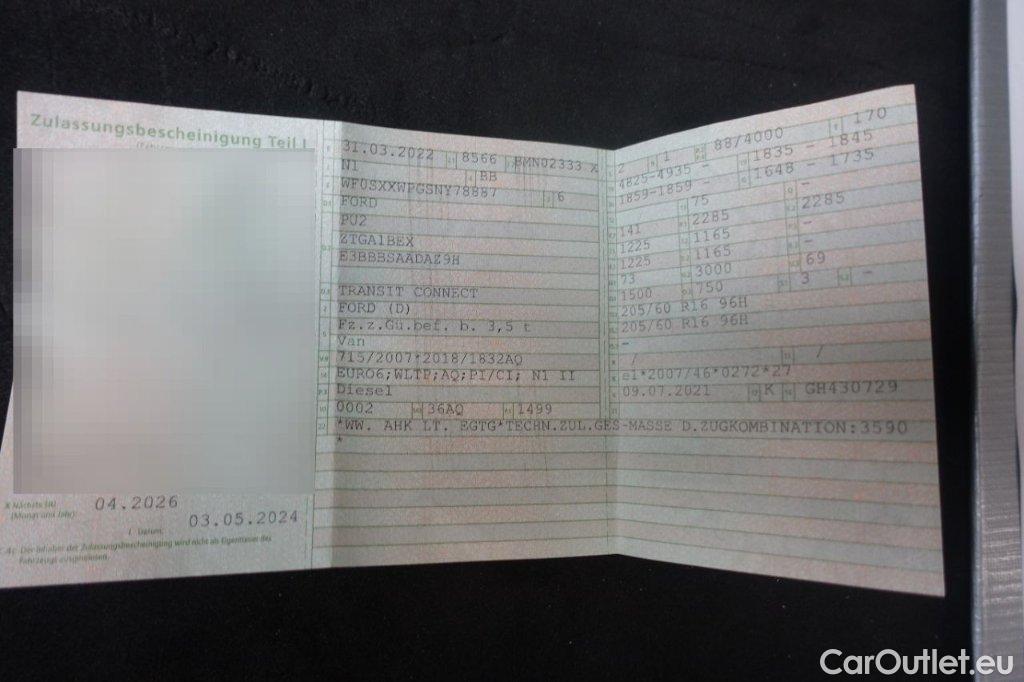 Zulassungsbescheinigung Teil I
X Nächste HU
(Monat und Jahr):
04.2026
I Datum:
03.05.2024
C.4c Der Inhaber der Zulassungsbescheinigung wird nicht als Eigentümer des
Fahrzeugs ausgewiesen.
31.03.2022 8566 BMN02333
N1 BB
WF0SXXWPGSNY78887 6
FORD
PU2
ZTGA1BEX
E3BBBSAADAZ9H
TRANSIT CONNECT
FORD (D)
Fz.z.Gü.bef. b. 3,5 t
Van
715/2007*2018/1832AQ
EURO6;WLTP;AQ;PI/CI; N1 II
Diesel
0002 36AQ 1499
*WW. AHK LT. EGTG*TECHN.ZUL.GES-MASSE D.ZUGKOMBINATION:3590
*
2 1 88/4000 170
4825-4935 - 1835 - 1845
1859-1859 - 1648 - 1735
75 -
141 2285 2285
1225 1165 -
1225 1165 -
73 3000 69
1500 750 3 -
205/60 R16 96H
205/60 R16 96H
-
/ /
e1*2007/46*0272*27
09.07.2021 K GH430729
CarOutlet.eu